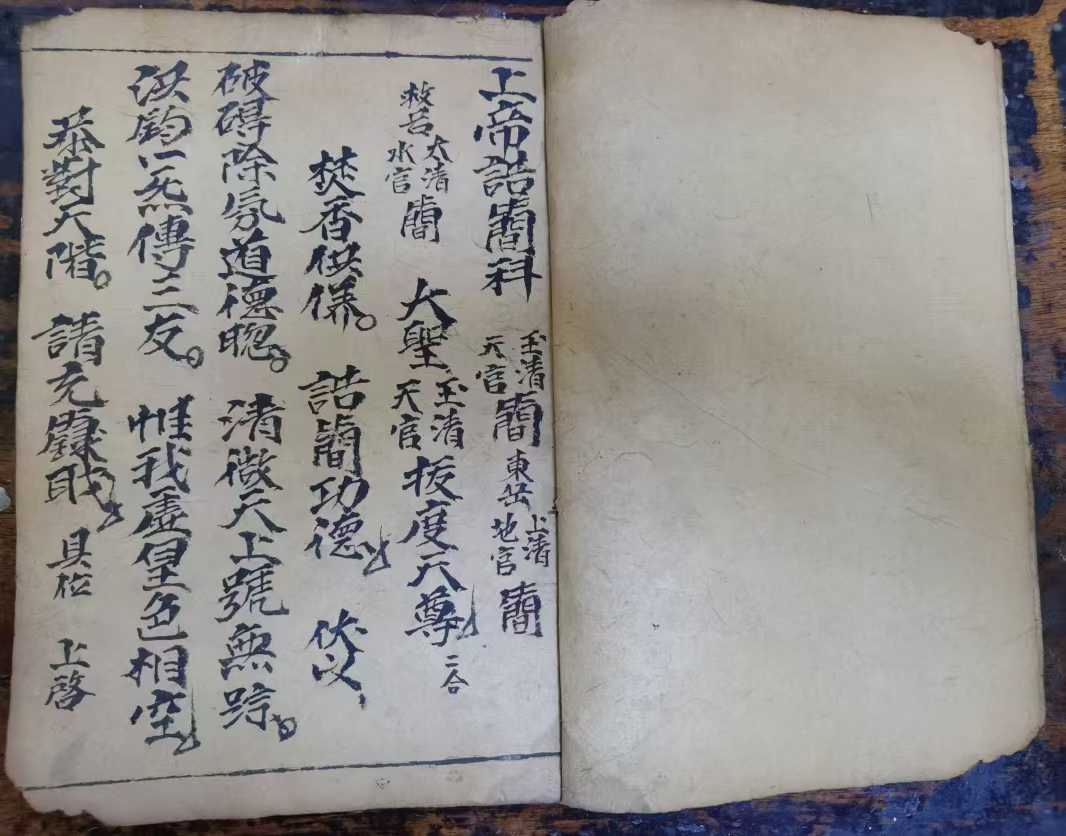 上帝誥簡科 玉清天官簡 東岳上清地官簡
救苦太清水官簡 大聖玉清天官拔度天尊 二合
焚香供養。誥簡功德 伏以
破碍除氛道德聰。清微天上號無踪。
洪鈞一炁傳三友。惟我虛皇色相空
恭對天階。請充籙職 具位 上啓